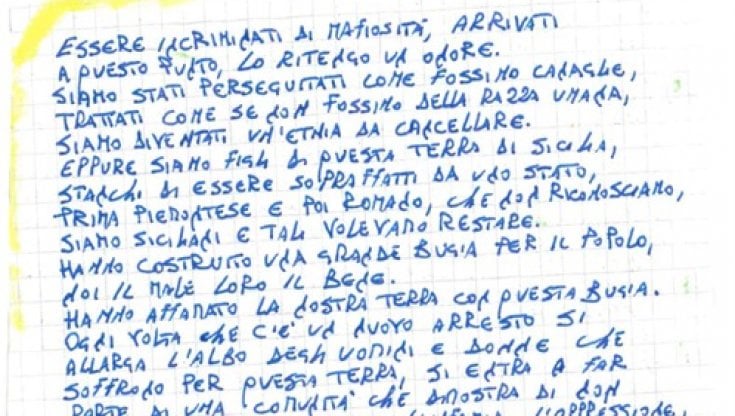 ESSERE INCRIMINATI DI MAFIOSITÀ, ARRIVATI
A QUESTO PUNTO, LO RITENGO UN ONORE.
SIAMO STATI PERSEGUITATI COME FOSSIMO CANAGLIE,
TRATTATI COME SE NON FOSSIMO DELLA RAZZA UMANA,
SIAMO DIVENTATI UN'ETNIA DA CANCELLARE.
EPPURE SIAMO FIGLI DI QUESTA TERRA DI SICILIA,
STANCHI DI ESSERE SOPRAFFATTI DA UNO STATO,
PRIMA PIEMONTESE E POI ROMANO, CHE NON RICONOSCIAMO,
SIAMO SICILIANI E TALI VOLEVAMO RESTARE.
HANNO COSTRUITO UNA GRANDE BUGIA PER IL POPOLO,
NOI IL MALE LORO IL BENE.
HANNO AFFAMATO LA NOSTRA TERRA CON QUESTA BUGIA.
OGNI VOLTA CHE C'È UN NUOVO ARRESTO SI
ALLARGA L'ALBO DEGLI UOMINI E DONNE CHE
SOFFRONO PER QUESTA TERRA, SI ENTRA A FAR
PARTE DI UNA COMUNITÀ CHE DIMOSTRA DI NON